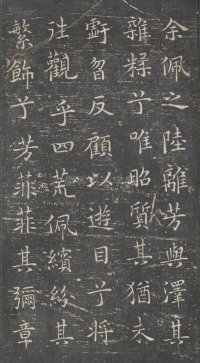 余佩之陸離芳與澤其
雜糅兮唯昭質其猶未
虧忽反顧以遊目兮將
往觀乎四荒佩繽紛其
繁飾兮芳菲菲其彌章